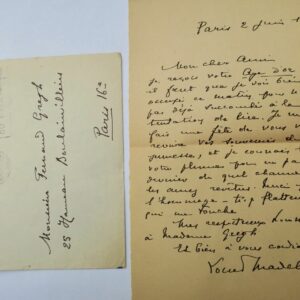 Monsieur Fernand Gregh
25 Hameau Boulainvilliers
Paris 16e
Paris 2 juin 1
Mon cher Ami
Je reçois votre Age d'or
il faut que je sois bien
occupé ce matin pour n'
pas déjà succombé à la
tentation de lire. Je me
fais une fête de vous
revivre vos souvenirs de
jeunesse, et je connais
votre plume pour ne pas
deviner de quel charme
les aurez revêtus. Merci
l'hommage trop flatteur
qui me touche
Mes respectueux hommages
à Madame Gregh
Et bien à vous cordia
Louis Madel